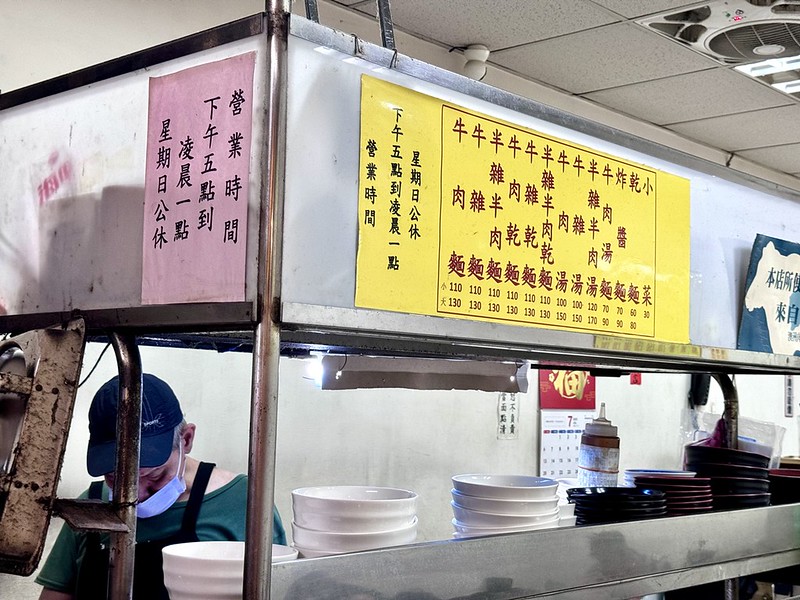 營業時間
下午五點到
凌晨一點
星期日公休
營業時間
下午五點到凌晨一點
星期日公休
牛肉麵
牛雜麵
半雜半肉麵
牛肉乾麵
牛雜乾麵
半雜半肉乾麵
牛肉湯
牛雜湯
半雜半肉湯
牛肉湯麵
炸醬麵
乾麵
小菜
小 110 110 110 110 110 110 100 100 120 70 70 60 30
大 130 130 130 130 130 130 150 150 170 90 90 80
本店所使
來自
當面點清
7